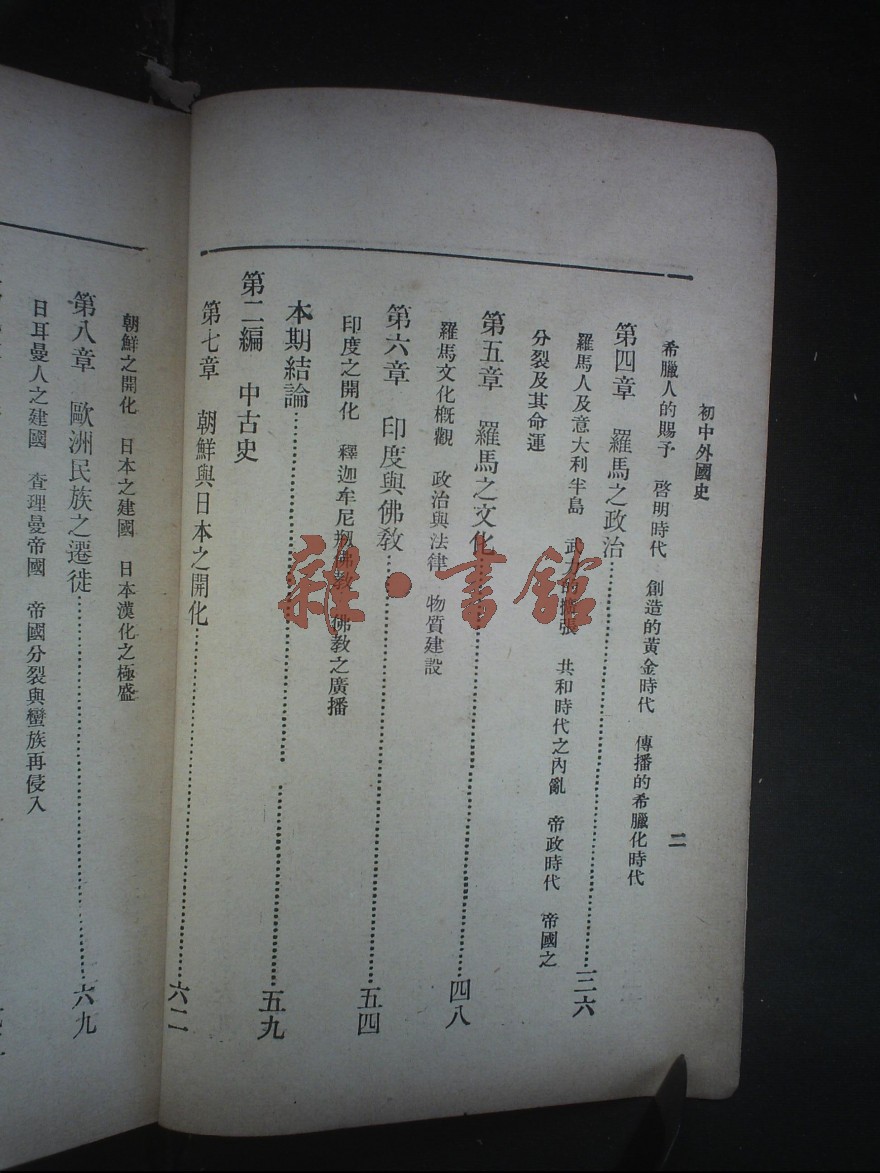 初中外國史
二
希臘人的賜予 啓明時代 創造的黃金時代 傳播的希臘化時代
第四章 羅馬之政治 三六
羅馬人及意大利半島 武力的擴張 共和時代之內亂 帝政時代 帝國之
分裂及其命運
第五章 羅馬之文化 四八
羅馬文化概觀 政治與法律 物質建設
第六章 印度與佛敎 五四
印度之開化 釋迦牟尼剏佛敎 佛敎之廣播
本期結論 五九
第二編 中古史
第七章 朝鮮與日本之開化 六二
朝鮮之開化 日本之建國 日本漢化之極盛
第八章 歐洲民族之遷徙 六九
日耳曼人之建國 查理曼帝國 帝國分裂與蠻族再侵入
雜·書館